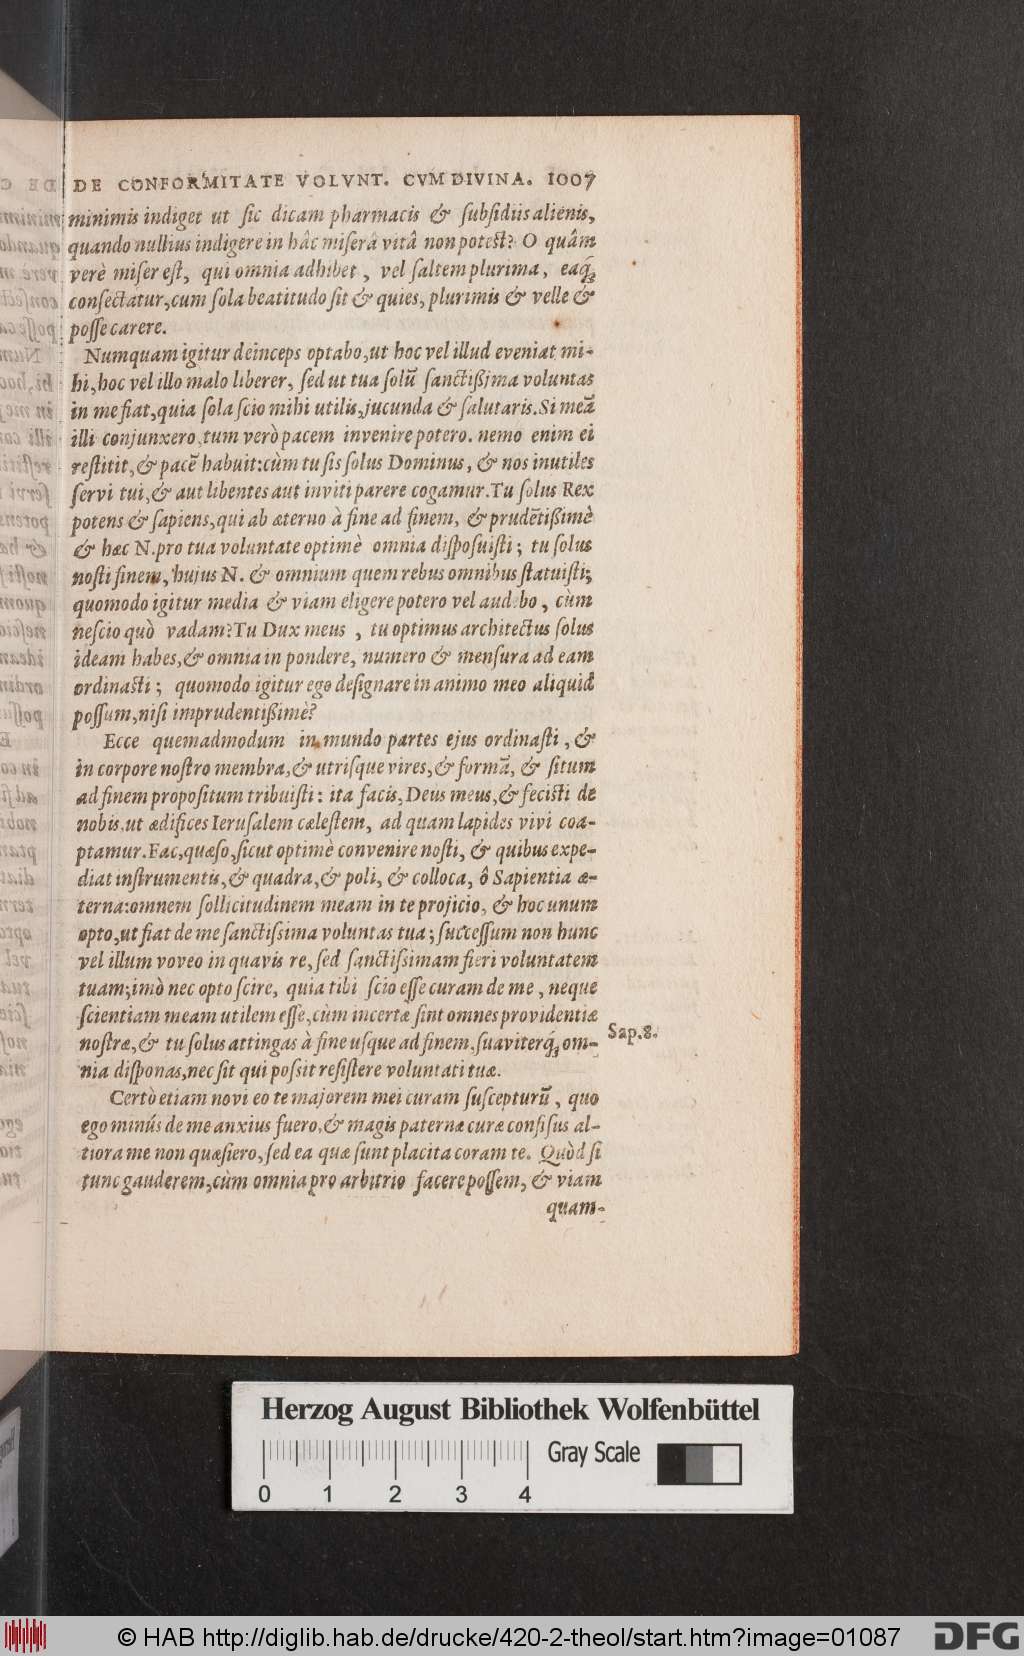 DE CONFORMITATE VOLVNT. CVM DIVINA. 1007
minimis indiget ut sic dicam pharmacis & subsidiis alienis,
quando nullius indigere in hâc miserâ vitâ non potest? O quâm
verè miser est, qui omnia adhibet, vel saltem plurima, eaq́;
consectatur, cum sola beatitudo sit & quies, plurimis & velle &
posse carere.
Numquam igitur deinceps optabo, ut hoc vel illud eveniat mi-
hi, hoc vel illo malo liberer, sed ut tua solū sanctißima voluntas
in me fiat, quia sola scio mihi utilis, jucunda & salutaris. Si meā
illi conjunxero, tum verò pacem invenire potero. nemo enim ei
restitit, & pacē habuit: cùm tu sis solus Dominus, & nos inutiles
servi tui, & aut libentes aut inviti parere cogamur. Tu solus Rex
potens & sapiens, qui ab æterno à fine ad finem, & prudētißimè
& hæc N. pro tua voluntate optimè omnia disposuisti; tu solus
nosti finem, hujus N. & omnium quem rebus omnibus statuisti;
quomodo igitur media & viam eligere potero vel audebo, cùm
nescio quò vadam? Tu Dux meus, tu optimus architectus solus
ideam habes, & omnia in pondere, numero & mensura ad eam
ordinasti; quomodo igitur ego designare in animo meo aliquid
possum, nisi imprudentißimè?
Ecce quemadmodum in mundo partes ejus ordinasti, &
in corpore nostro membra, & utrisque vires, & formā, & situm
ad finem propositum tribuisti: ita facis, Deus meus, & fecisti de
nobis, ut ædifices Ierusalem cælestem, ad quam lapides vivi coa-
ptamur. Fac, quæso, sicut optimè convenire nosti, & quibus expe-
diat instrumentis, & quadra, & poli, & colloca, ô Sapientia æ-
terna: omnem sollicitudinem meam in te projicio, & hoc unum
opto, ut fiat de me sanctissima voluntas tua; successum non hunc
vel illum voveo in quavis re, sed sanctissimam fieri voluntatem
tuam; imò nec opto scire, quia tibi scio esse curam de me, neque
scientiam meam utilem esse, cùm incertæ sint omnes providentiæ
nostræ, & tu solus attingas à fine usque ad finem, suaviterq́; om-
nia disponas, nec sit qui possit resistere voluntati tuæ.
Sap. 8.
Certò etiam novi eo te majorem mei curam suscepturū, quo
ego minús de me anxius fuero, & magis paternæ curæ confisus al-
tiora me non quæsiero, sed ea quæ sunt placita coram te. Quòd si
tunc gauderem, cùm omnia pro arbitrio facere possem, & viam
quam-
Herzog August Bibliothek Wolfenbüttel
Gray Scale
0 1 2 3 4
© HAB http://diglib.hab.de/drucke/420-2-theol/start.htm?image=01087
DFG